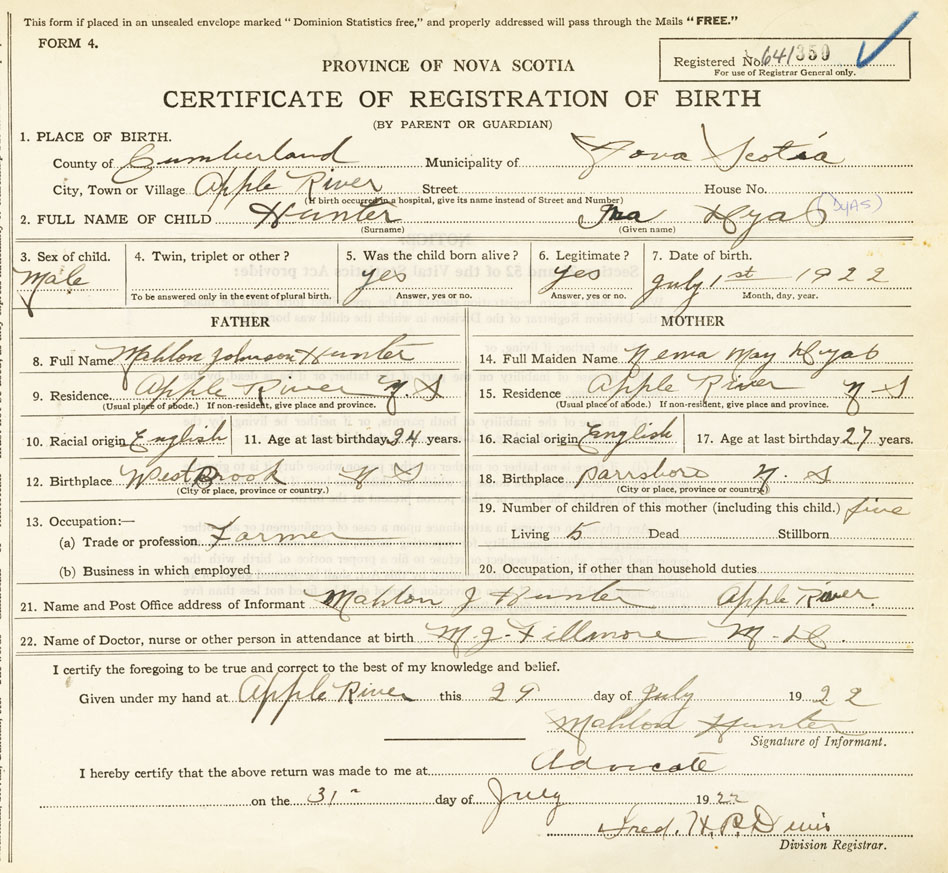 This form if placed in an unsealed envelope marked "Dominion Statistics free," and properly addressed will pass through the Mails "FREE."
FORM 4.
Registered No. 641350
For use of Registrar General only.
PROVINCE OF NOVA SCOTIA
CERTIFICATE OF REGISTRATION OF BIRTH
(BY PARENT OR GUARDIAN)
1. PLACE OF BIRTH.
County of Cumberland Municipality of Nova Scotia
City, Town or Village Apple River Street House No.
(If birth occurred in a hospital, give its name instead of Street and Number)
2. FULL NAME OF CHILD Hunter Ira Dyas (DYAS)
(Surname) (Given name)
3. Sex of child. 4. Twin, triplet or other? 5. Was the child born alive? 6. Legitimate? 7. Date of birth.
Male yes yes July 1st 1922
To be answered only in the event of plural birth. Answer, yes or no. Answer, yes or no. Month, day, year.
FATHER
8. Full Name Mahlon Johnson Hunter
9. Residence. Apple River N.S
(Usual place of abode.) If non-resident, give place and province.
10. Racial origin English 11. Age at last birthday 34 years.
12. Birthplace West Brook N S.
(City or place, province or country.)
13. Occupation:—
(a) Trade or profession Farmer
(b) Business in which employed
MOTHER
14. Full Maiden Name May Dyas
15. Residence Apple River N S
(Usual place of abode.) If non-resident, give place and province.
16. Racial origin English 17. Age at last birthday 27 years.
18. Birthplace Parrsboro N. S
(City or place, province or country.)
19. Number of children of this mother (including this child.) five
Living 5 Dead Stillborn
20. Occupation, if other than household duties
21. Name and Post Office address of Informant Mahlon J Hunter Apple River.
22. Name of Doctor, nurse or other person in attendance at birth. M. J. Fillmore M-D.
I certify the foregoing to be true and correct to the best of my knowledge and belief.
Given under my hand at Apple River this 29 day of July 1922
Mahlon Hunter
Signature of Informant.
I hereby certify that the above return was made to me at Advocate
on the 31 day of July 1922
Fred. H. P.
Division Registrar.